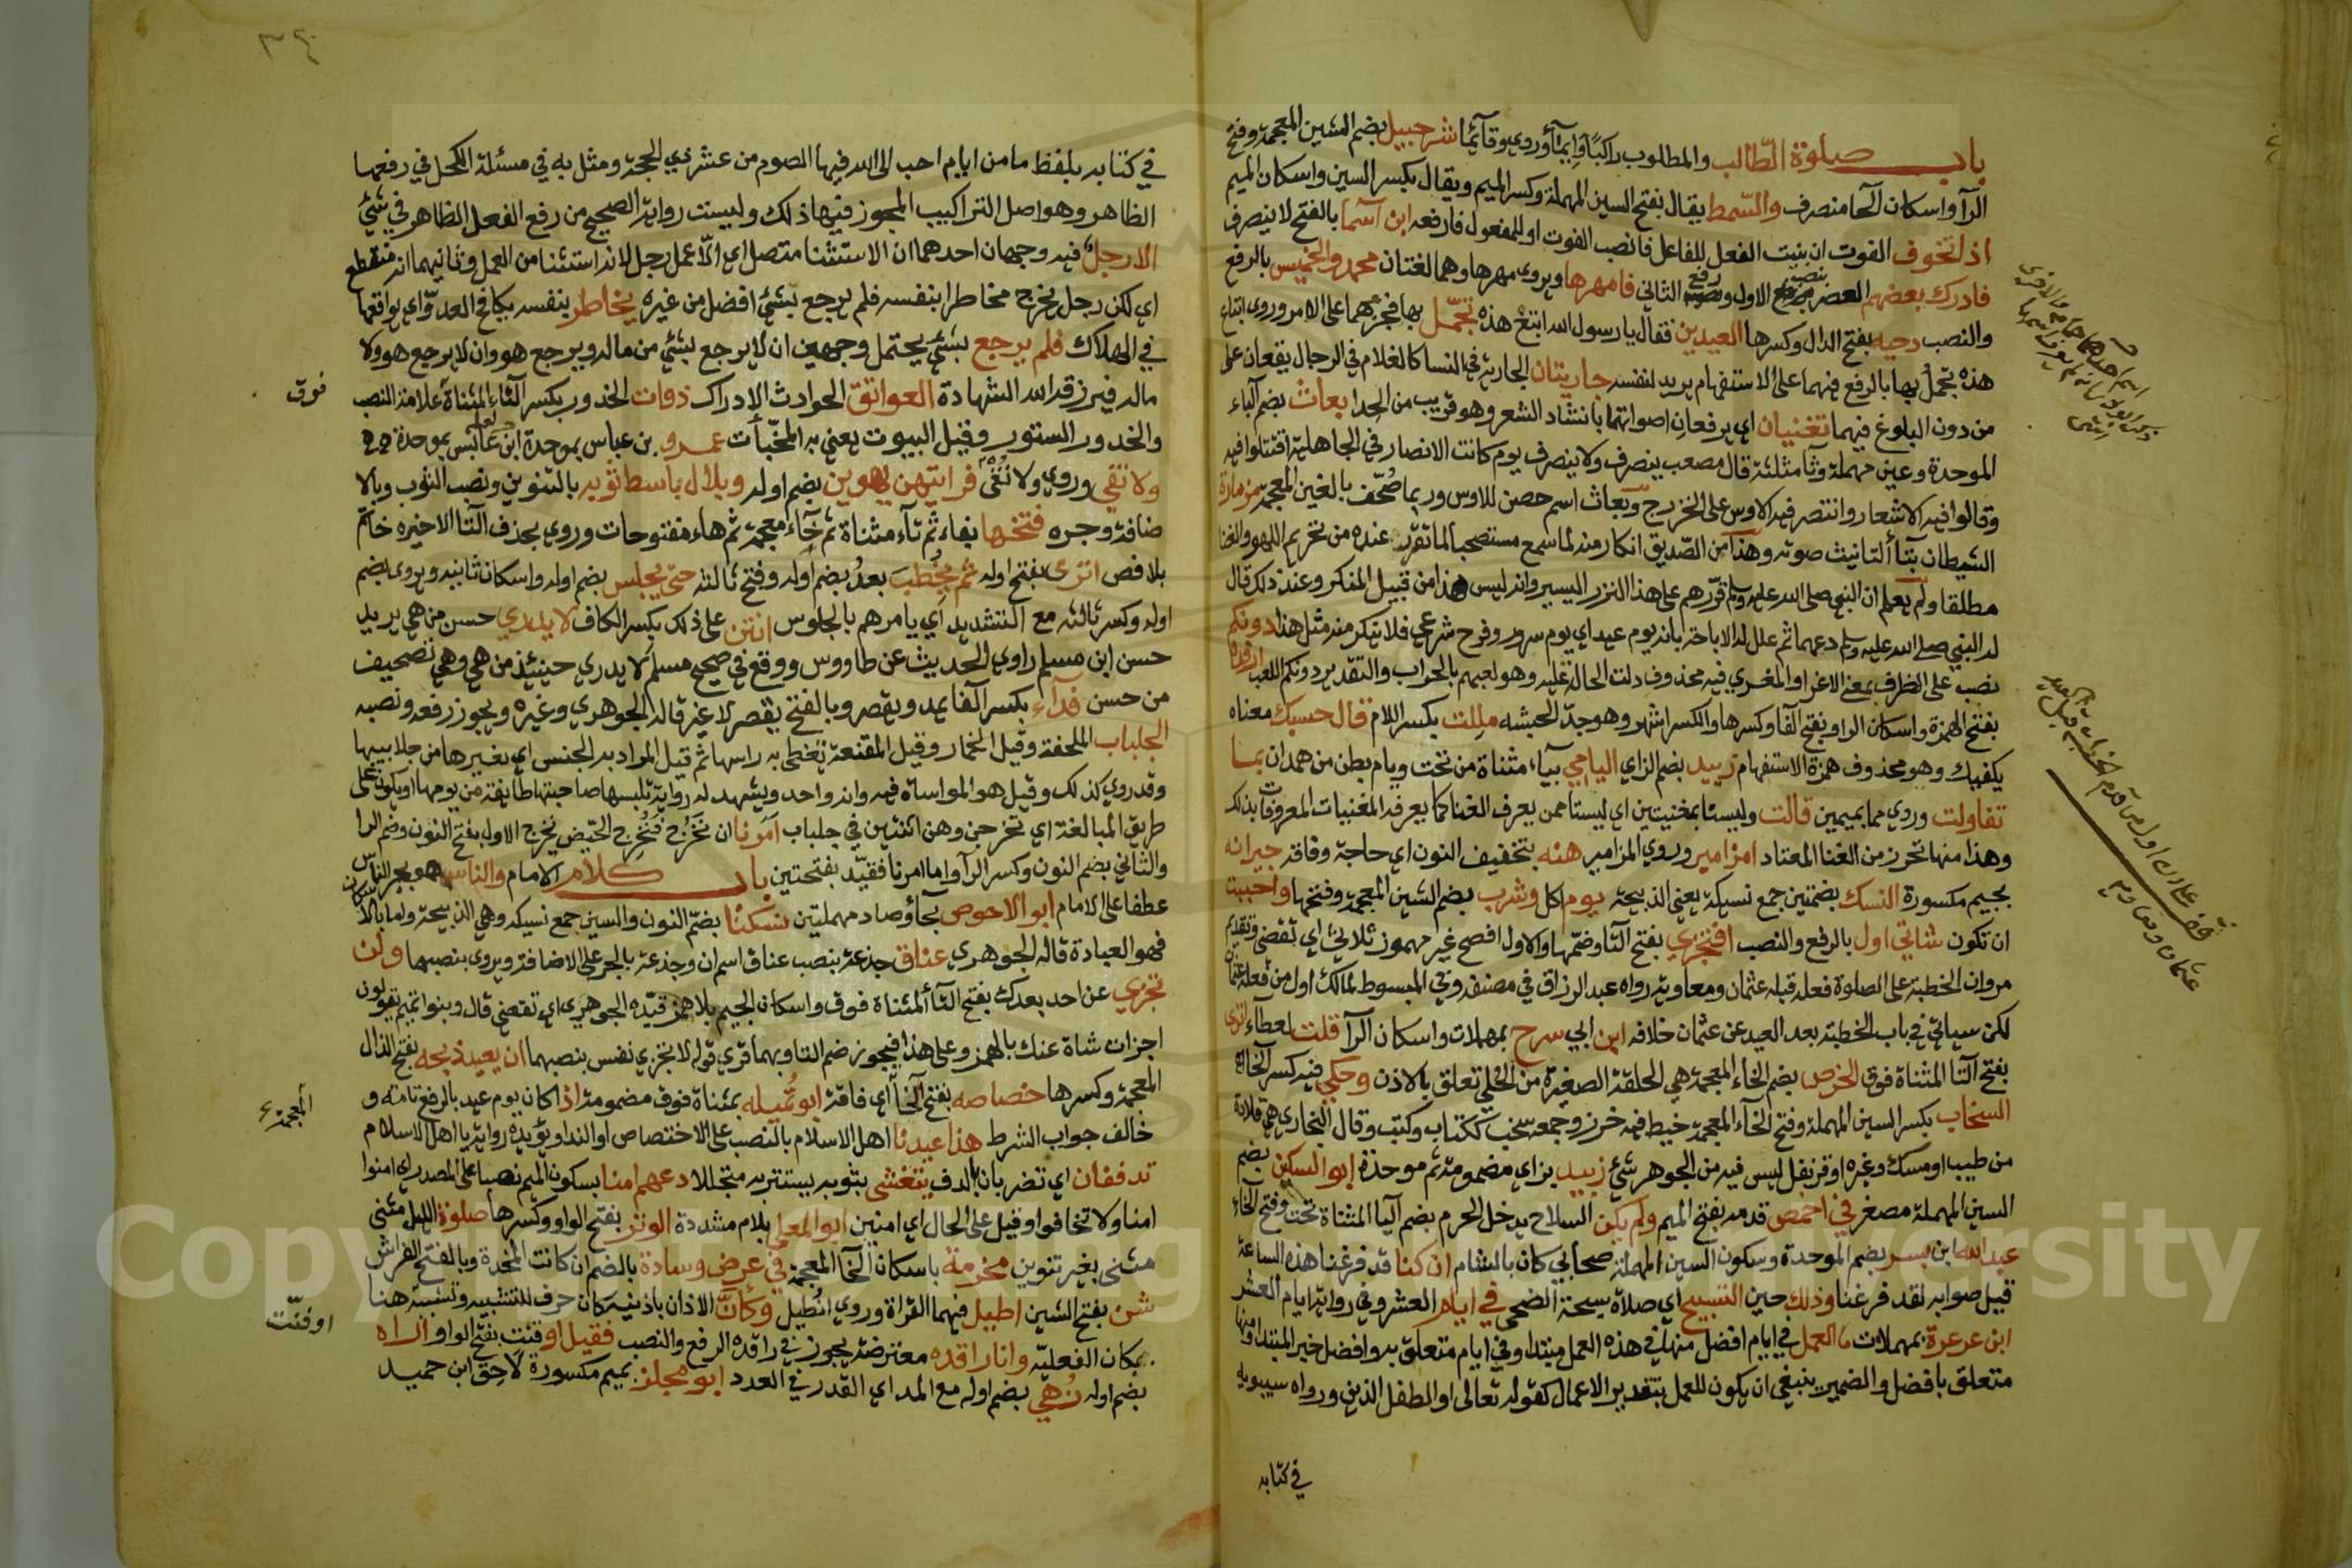 باب صلوة الطالب والمطلوب راكبا وايمآ وروي وقآئما شرحبيل بضم الشين المعجمة وفتح
الرآ واسكان الحآ منصرف والسمط يقال بفتح السين المهملة وكسر الميم ويقال بكسر السين واسكان الميم
اذا تخوف الفوت ان بنيت الفعل للفاعل فانصب الفوت او للمفعول فارفعه ابن آسمآ بالفتح لا ينصرف
فادرك بعضهم العصر بنصب الاول ورفع الثاني فامهرها ويروى مهرها وهما لغتان محمد والخميس بالرفع
والنصب دحيه بفتح الدال وكسرها العيدين فقال يا رسول الله ابتع هذه تجمل بها فجزمهما على الامر وروى ابتاع
هذه تجمل بها بالرفع فيهما على الاستفهام يريد لنفسه جاريتان الجارية في النسا كالغلام في الرجال يقعان على
من دون البلوغ فيهما تغنيان اي يرفعان اصواتهما بانشاد الشعر وهو قريب من الحدا بعاث بضم الباء
الموحدة وعين مهملة وثآ مثلثة قال مصعب ينصرف ولا ينصرف يوم كانت الانصار في الجاهلية اقتتلوا فيه
وقالوا فيه الاشعار وانتصر فيه الاوس على الخزرج وبعاث اسم حصن للاوس وربما صحف بالغين المعجمة مزمارة
الشيطان بتآ التانيث صوته وهذا من الصديق انكار منه لما سمع مستصحبا لما تقرر عنده من تحريم اللهو والغنا
مطلقا ولم يعلم ان النبي صلى الله عليه وسلم قررهم على هذا النزر اليسير وانه ليس هذا من قبيل المنكر وعند ذلك قال
له النبي صلى الله عليه وسلم دعهما ثم علل له الاباحة بانه يوم عيد اي يوم سرور وفرح شرعي فلا ينكر منه مثل هذا دونكم
نصب على الظرف بمعنى الاغرا والمغري فيه محذوف دلت الحالة عليه وهو لعبهم بالحراب والتقدير دونكم اللعب ارفدة
بفتح الهمزة واسكان الرا وبفتح الفآ وكسرها والكسر اشهر وهو جد الحبشه مللت بكسر اللام قال حسبك معناه
يكفيك وهو محذوف همزة الاستفهام زبيد بضم الزاي اليامي بيآء مثناة من تحت ويام بطن من همدان بما
تقاولت وروي مما بميمين قالت وليستا بمغنيتين اي ليستا ممن يعرف الغنا كما يعرفه المغنيات المعروفات بذلك
وهذا منها تحرز من الغنا المعتاد امزامير وروي المزامير هنه بتخفيف النون اي حاجة وفاقة جيرانه
بجيم مكسورة النسك بضمتين جمع نسيكة يعني الذبيحة يوم اكل وشرب بضم الشين المعجمة وفتحها واحببت
ان تكون شاتي اول بالرفع والنصب افتجزي بفتح التآ وضمها والاول افصح غير مهموز ثلاثي اي تقضي وتقديم
مروان الخطبة على الصلوة فعله قبله عثمان ومعاوية رواه عبد الرزاق في مصنفه وفي المبسوط لمالك اول من فعله عثمان
لكن سياتي في باب الخطبة بعد العيد عن عثمان خلافه ابن ابي سرح بمهملات واسكان الرآ قلت لعطاء اترى
بفتح التآ المثناة فوق الخرص بضم الخاء المعجمة هي الحلقة الصغيرة من الحلي تعلق بالاذن وحكي فيه كسر الخاء
السخاب بكسر السين المهملة وفتح الخآء المعجمة خيط فيه خرز وجمعه سخب ككتاب وكتب وقال البخاري هي قلادة
من طيب او مسك وغيره او قرنفل ليس فيه من الجوهر شئ زبيد بزاي مضمومة ثم موحدة ابو السكين بضم
السين المهملة مصغر في اخمص قدمه بفتح الميم ولم يكن السلاح يدخل الحرم بضم اليا المثناة تحت وفتح الخاء
عبد الله ابن بسر بضم الموحدة وسكون السين المهملة صحابي كان بالشام ان كنا قد فرغنا هذه الساعة
قيل صوابه لقد فرغنا وذلك حين التسبيح اي صلاة سبحة الضحى في ايام العشر وفي رواية ايام العشر
ابن عرعرة بمهملات ما العمل في ايام افضل منها في هذه العمل مبتدا وفي ايام متعلق به وافضل خبر المبتدا ومنها
متعلق بافضل والضمير ينبغي ان يكون للعمل بتقدير الاعمال كقوله تعالى او الطفل الذين ورواه سيبويه
في كتابه
٣٤
في كتابه بلفظ ما من ايام احب الى الله فيها الصوم من عشر ذي الحجة ومثل به في مسئلة الكحل في رفعها
الظاهر وهو اصل التراكيب المجوز فيها ذلك وليست رواية الصحيح من رفع الفعل الظاهر في شئ
الا رجل فيه وجهان احدهما ان الاستثنا متصل اي الا عمل رجل لانه استثنا من العمل وثانيهما انه منقطع
اي لكن رجل يخرج مخاطرا بنفسه فلم يرجع بشئ افضل من غيره يخاطر بنفسه يكافح العدو اي يواقعها
في الهلاك فلم يرجع بشئ يحتمل وجهين ان لا يرجع بشئ من ماله ويرجع هو وان لا يرجع هو ولا
ماله فيرزقه الله الشهادة العواتق الحوادث الادراك ذوات الخدور بكسر التاء المثناة علامة النصب
فوق
والخدور الستور وقيل البيوت يعني به المخبآت عمرو بن عباس بموحدة ابن عابس بموحدة
ولا تقي وروي ولا تقى فرايتهن يهوين بضم اوله وبلال باسط ثوبه بالتنوين ونصب الثوب وبالا
ضافة وجره فتخها بفاء ثم تآء مثناة ثم خآء معجمة ثم هاء مفتوحات وروي بحذف التا الاخيره خاتم
بلا فص اترى بفتح اوله ثم يخطب بعد بضم اوله وفتح ثالثه حتى يجلس بضم اوله واسكان ثانيه ويروى بضم
اوله وكسر ثالثه مع التشديد اي يامرهم بالجلوس انتن على ذلك بكسر الكاف لا يدري حسن من هي يريد
حسن ابن مسلم راوي الحديث عن طاووس ووقع في صحيح مسلم لا يدري حينئذ من هي وهي تصحيف
من حسن فدآء بكسر الفآ يمد ويقصر وبالفتح يقصر لا غير قاله الجوهري وغيره ويجوز رفعه ونصبه
الجلباب الملحفة وقيل الخمار وقيل المقنعة تغطى به راسها ثم قيل المراد به الجنس اي تعيرها من جلابيبها
وقد روي كذلك وقيل هو المواساة فيه وانه واحد ويشهد له رواية تلبسها صاحبتها طآئفة من ثوبها او يكون على
طريق المبالغة اي تخرجن وهن اثنتين في جلباب امرنا ان نخرج فنخرج الحيض نخرج الاول بفتح النون وضم الرا
والثاني بضم النون وكسر الرآ واما امرنا فقيد بفتحتين باب كلام الامام والناس هو بجر الناس
عطفا على الامام ابو الاحوص بحآ وصاد مهملتين نسكنا بضم النون والسين جمع نسيكه وهي الذبيحة واما بالاسكان
فهو العبادة قاله الجوهري عناق جذعة بنصب عناق اسم ان وجذعة بالجر على الاضافة ويروى بنصبهما ولن
تجزي عن احد بعدك بفتح التآ المثناة فوق واسكان الجيم بلا همز قيده الجوهري اي تقضي قال وبنوا تميم يقولون
اجزات شاة عنك بالهمز وعلى هذا فيجوز ضم التا وبهما قري قوله لا تجزي نفس بنصبهما ان يعيد ذبحه بفتح الذال
المعجمة وكسرها خصاصه بفتح الخآ اي فاقة ابو تميله بمثناة فوق مضمومة اذا كان يوم عيد بالرفع تامة و
المعجمة
خالف جواب الشرط هذا عيدنا اهل الاسلام بالنصب على الاختصاص او الندا ويؤيده رواية يا اهل الاسلام
تدففان اي تضربان بالدف يتغشى بثوبه يستتر به متجللا دعهم امنا بسكون الميم نصبا على المصدر اي امنوا
امنا ولا تخافوا وقيل على الحال اي امنين ابو المعلى بلام مشددة الوتر بفتح الواو وكسرها صلوة الليل مثنى
مثنى بغير تنوين مخرمة باسكان الخآ المعجمة في عرض وسادة بالضم ان كانت المخدة وبالفتح الفراش
شن بفتح الشين اطيل فيهما القراة وروي انطيل وكان الاذان باذنيه كان حرف للتشبيه وتشبيه هنا
اوقنت
بمكان الفعلية وانا راقده معترضة يجوز في راقده الرفع والنصب فقيل او قنت بفتح الواو اتراه
بضم اوله نهي بضم اوله مع المد اي القدر في العدد ابو مجلز بميم مكسورة لاحق ابن حميد
Copyright © King Saud University